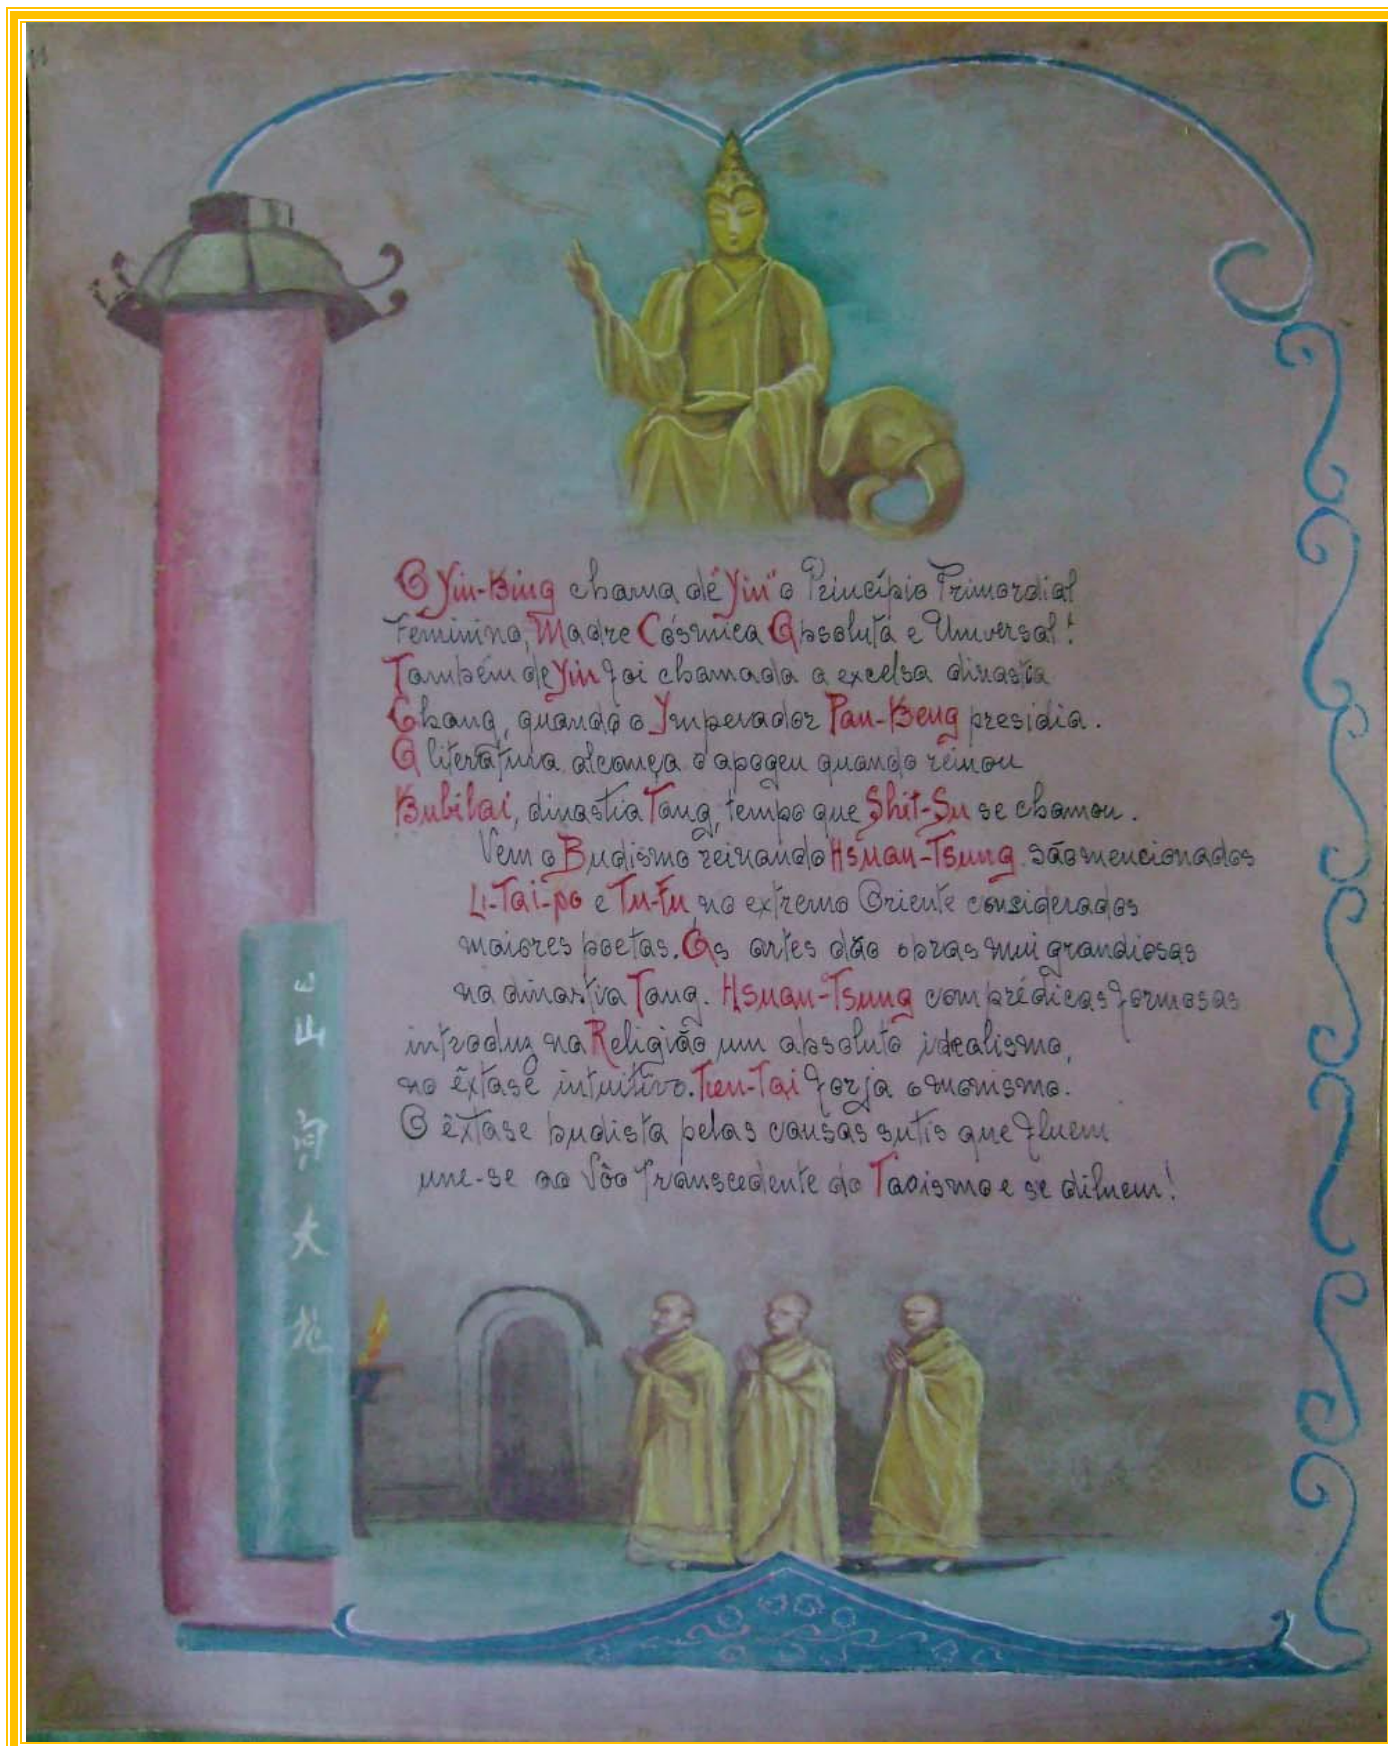 11
O Yin-King chama de "Yin" o Princípio Primordial
Feminino, Madre Cósmica Absoluta e Universal!
Também de Yin foi chamada a excelsa dinastia
Chang, quando o Ymperador Pan-Keng presidia.
A literatura alcança o apogeu quando reinou
Kubilai, dinastia Tang, tempo que Shit-Su se chamou.
Vem o Budismo reinando Hsuan-Tsung. são mencionados
Li-Tai-po e Tu-Fu, no extremo Oriente considerados
maiores poetas. As artes dão obras mui grandiosas
na dinastia Tang. Hsuan-Tsung com prédicas formosas
introduz na Religião um absoluto idealismo,
no êxtase intuitivo. Tien-Tai forja o monismo.
O êxtase budista pelas causas sutis que fluem
une-se ao Vôo Transcedente do Taoismo e se diluem!
山
大